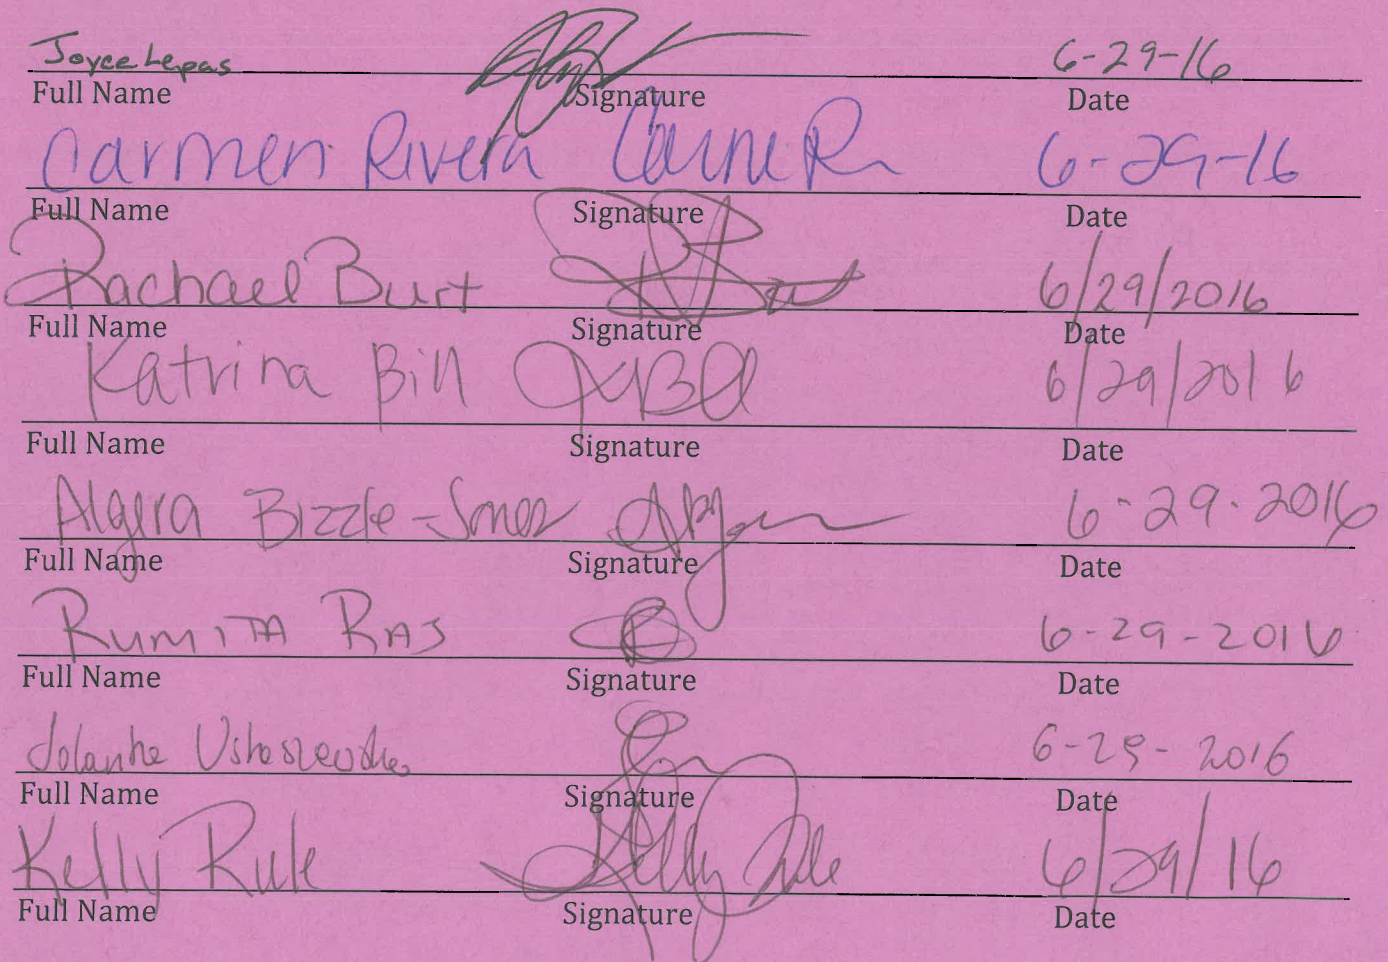 Joyce Lepas 6-29-16
Full Name Signature Date
Carmen Rivera 6-29-16
Full Name Signature Date
Rachael Burt 6/29/2016
Full Name Signature Date
Katrina Bill 6/29/2016
Full Name Signature Date
Bizzle-Jones 6-29-2016
Full Name Signature Date
Rumita Raj 6-29-2016
Full Name Signature Date
6-29-2016
Full Name Signature Date
Kelly Rule Kelly Rule 6/29/16
Full Name Signature Date